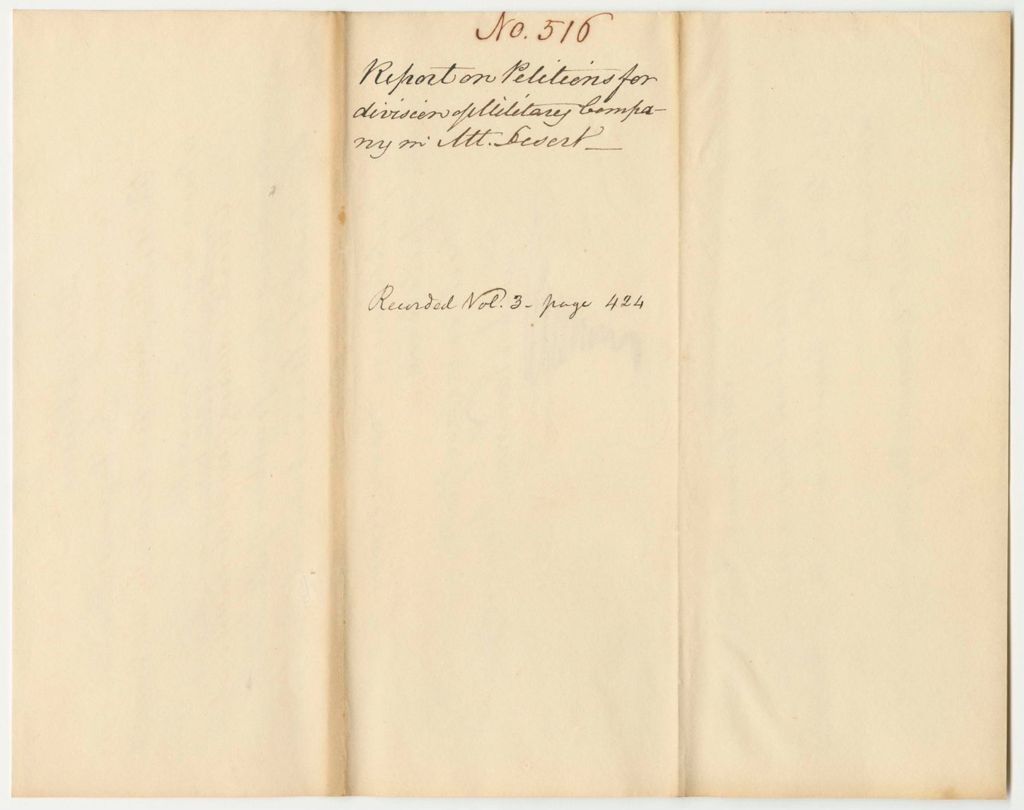 No. 516
Report on Petitions for
division of Military Compa-
ny in Mt. Desert
Recorded Vol. 3 - page 424